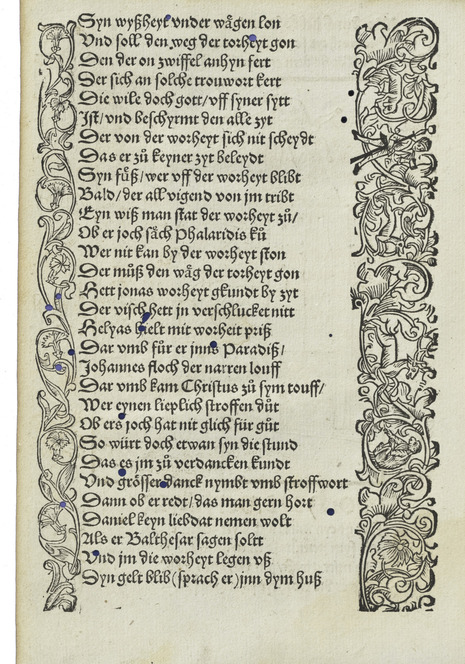 Syn wyßheyt vnder wägen lon
Vnd soll den weg der torheyt gon
Den der on zwiffel anhyn fert
Der sich an solche trouwort kert
Die wile doch gott/ vff syner sytt
Jst/ vnd beschyrmt den alle zyt
Der von der worheyt sich nit scheydt
Das er zů keyner zyt beleydt
Syn fůß/ wer vff der worheyt blibt
Bald/ der all vigend von jm tribt
Eyn wiß man stat der worheyt zů/
Ob er joch säch Phalaridis ků
Wer nit kan by der worheyt ston
Der můß den wäg der torheyt gon
Hett jonas worheyt gkundt by zyt
Der visch hett jn verschlucket nitt
Helyas hielt mit worheit priß
Dar vmb für er jnns Paradiß/
Johannes floch der narren louff
Dar vmb kam Christus zů sym touff/
Wer eynen lieplich stroffen důt
Ob ers joch hat nit glich für gůt
So würt doch etwan syn die stund
Das es jm zů verdancken kundt
Vnd grösser danck nymbt vmb stroffwort
Dann ob er redt/ das man gern hort
Daniel keyn liebdat nemen wolt
Als er Balthesar sagen soltt
Vnd jm die worheyt legen vß
Dyn gelt blib (sprach er) jnn dym huß